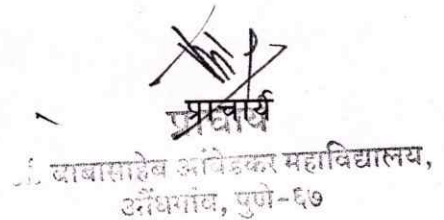 प्राचार्य
प्राचार्य
डॉ. बाबासाहेब आंबेडकर महाविद्यालय,
औंधगांव, पुणे-६७